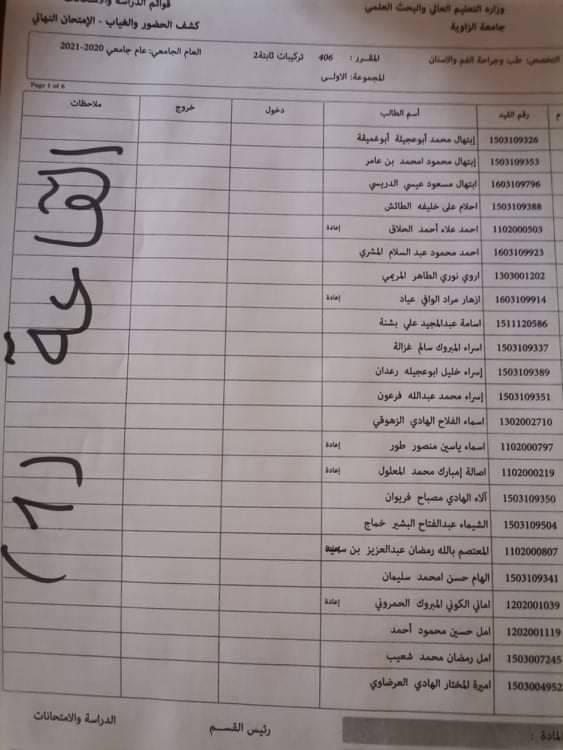 وزارة التعليم العالي والبحث العلمي
جامعة الزاوية
قوائم الدراسة والامتحانات
كشف الحضور والغياب - الإمتحان النهائي
التخصص: طب وجراحة الفم والاسنان
المقرر: 406 تركيبات ثابتة2
العام الجامعي: عام جامعي 2020-2021
المجموعة: الاولى
Page 1 of 6
م رقم القيد أسم الطالب دخول خروج ملاحظات
1503109326 إبتهال محمد أبوعجيلة أبوغميقة
1503109353 إبتهال محمود امحمد بن عامر
1603109796 ابتهال مسعود عيسي الدريسي
1503109388 احلام على خليفه الطائش
1102000503 احمد علاء أحمد الحلاق إعادة
1603109923 احمد محمود عبد السلام المشري
1303001202 اروي نوري الطاهر المريمي
1603109914 ازهار مراد الوافي عياد إعادة
1511120586 اسامة عبدالمجيد علي بشنة
1503109337 اسراء المبروك سالم غزالة
1503109389 إسراء خليل ابوعجيله رعدان
1503109351 إسراء محمد عبدالله فرعون
1302002710 اسماء الفلاح الهادي الزهوقي
1102000797 اسماء ياسين منصور طور إعادة
1102000219 اصالة إمبارك محمد المعلول إعادة
1503109350 آلاء الهادي مصباح فريوان
1503109504 الشيماء عبدالفتاح البشير خماج
1102000807 المعتصم بالله رمضان عبدالعزيز بن سعيد
1503109341 الهام حسن امحمد سليمان
1202001039 اماني الكوني المبروك الحمروني إعادة
1202001119 امل حسين محمود أحمد
1503007245 امل رمضان محمد شعيب
1503004952 اميرة المختار الهادي العرضاوي
القاعة (1)
المادة :
رئيس القسم
الدراسة والامتحانات